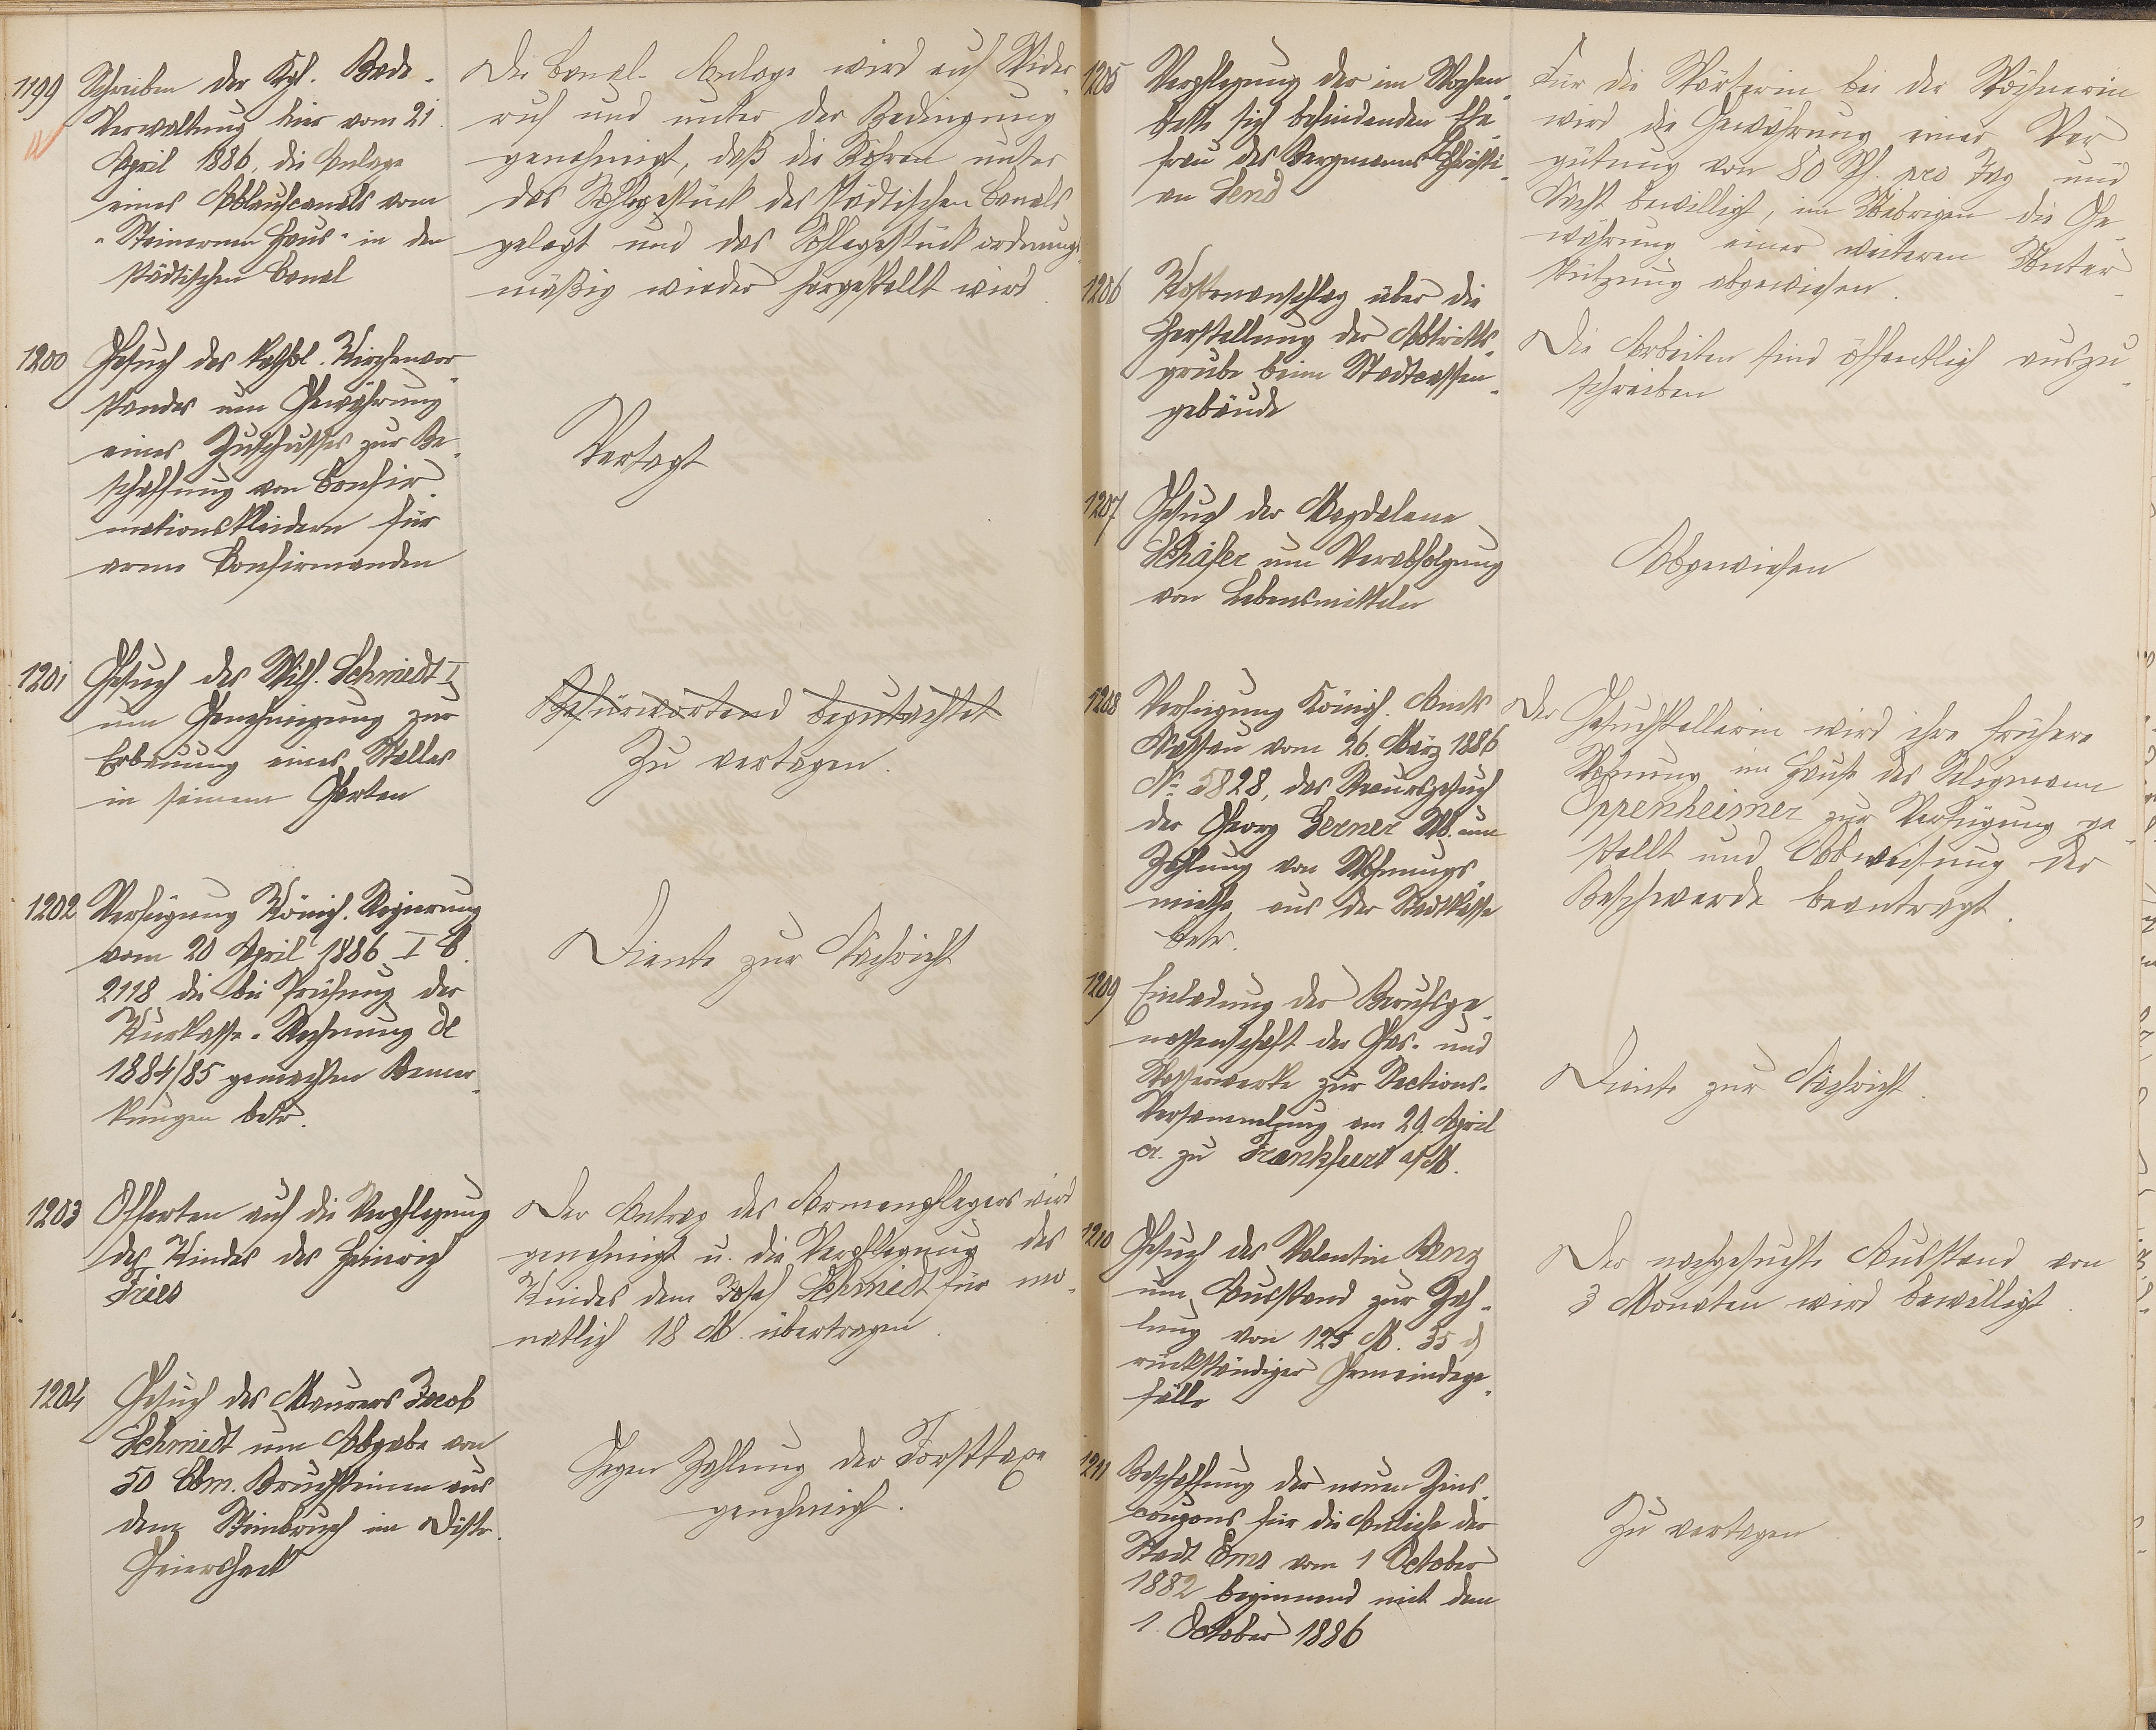 1199
Schreiben der Kgl. Bade-
Verwaltung hier vom 21.
April 1886, die Anlage
eines Ablaufcanals vom
"Steinernen Haus" in den
städtischen Canal
Die Canal-Anlage wird auf Wider-
ruf und unter der Bedingung
genehmigt, daß die Röhren unter
das Sohlgestück des städtischen Canals
gelegt und das Sohlgestück ordnungs-
mäßig wieder hergestellt wird.
1200
Gesuch des kathol. Kirchenvor-
standes um Gewährung
eines Zuschusses zur Be-
schaffung von Confir-
mationskleidern für
arme Confirmanden
Vertagt
1201
Gesuch des Wilh. Schmidt I
um Genehmigung zur
Erbauung eines Stalles
in seinem Garten
Befürwortend begutachtet
Zu vertagen.
1202
Verfügung Königl. Regierung
vom 20 April 1886 I C.
2118 die bei Prüfung der
Kurkasse-Rechnung de
1884/85 gemachten Bemer-
kungen betr.
Diente zur Nachricht
1203
Offerten auf die Verpflegung
des Kindes des Heinrich
Fries
Der Antrag des Armenpflegers wird
genehmigt u. die Verpflegung des
Kindes dem Josef Schmidt für mo-
natlich 18 M. übertragen.
1204
Gesuch des Maurers Jacob
Schmidt um Abgabe von
50 Cbm. Bruchsteinen aus
dem Steinbruch im Distr.
Geiersheck
Gegen Zahlung der Forsttaxe
genehmigt.
1205
Verpflegung der im Wochen-
bette sich befindenden Ehe-
frau des Bergmanns Christi-
an Send
Für die Wärterin bei der Wöchnerin
wird die Gewährung einer Ver-
gütung von 80 Pf. pro Tag und
Nacht bewilligt, im Uebrigen die Ge-
währung einer weiteren Unter-
stützung abgewiesen.
1206
Kostenanschlag über die
Herstellung der Abtritts-
grube beim Stadtcassen-
gebäude
Die Arbeiten sind öffentlich auszu-
schreiben
1207
Gesuch der Magdalena
Schäfer um Verabfolgung
von Lebensmitteln
Abgewiesen
1208
Verfügung Königl. Amts
Nassau vom 26. März 1886
No 5828, das Recursgesuch
der Georg Gerner Wb. um
Zahlung von Wohnungs-
miethe aus der Stadtkasse
betr.
Der Gesuchstellerin wird ihre frühere
Wohnung im Hause des Seligmann
Oppenheimer zur Verfügung ge-
stellt und Abweisung der
Beschwerde beantragt.
1209
Einladung der Berufsge-
nossenschaft der Gas- und
Wasserwerke zur Sections-
Versammlung am 29. April
cr. zu Frankfurt a/M.
Diente zur Nachricht.
1210
Gesuch des Valentin Benz
um Ausstand zur Zah-
lung von 125 M. 35 ₰
rückständiger Gemeindege-
fälle
Der nachgesuchte Ausstand von
3 Monaten wird bewilligt.
1211
Beschaffung der neuen Zins-
coupons für die Anleihe der
Stadt Ems vom 1 October
1882 beginnend mit dem
1. October 1886
Zu vertagen